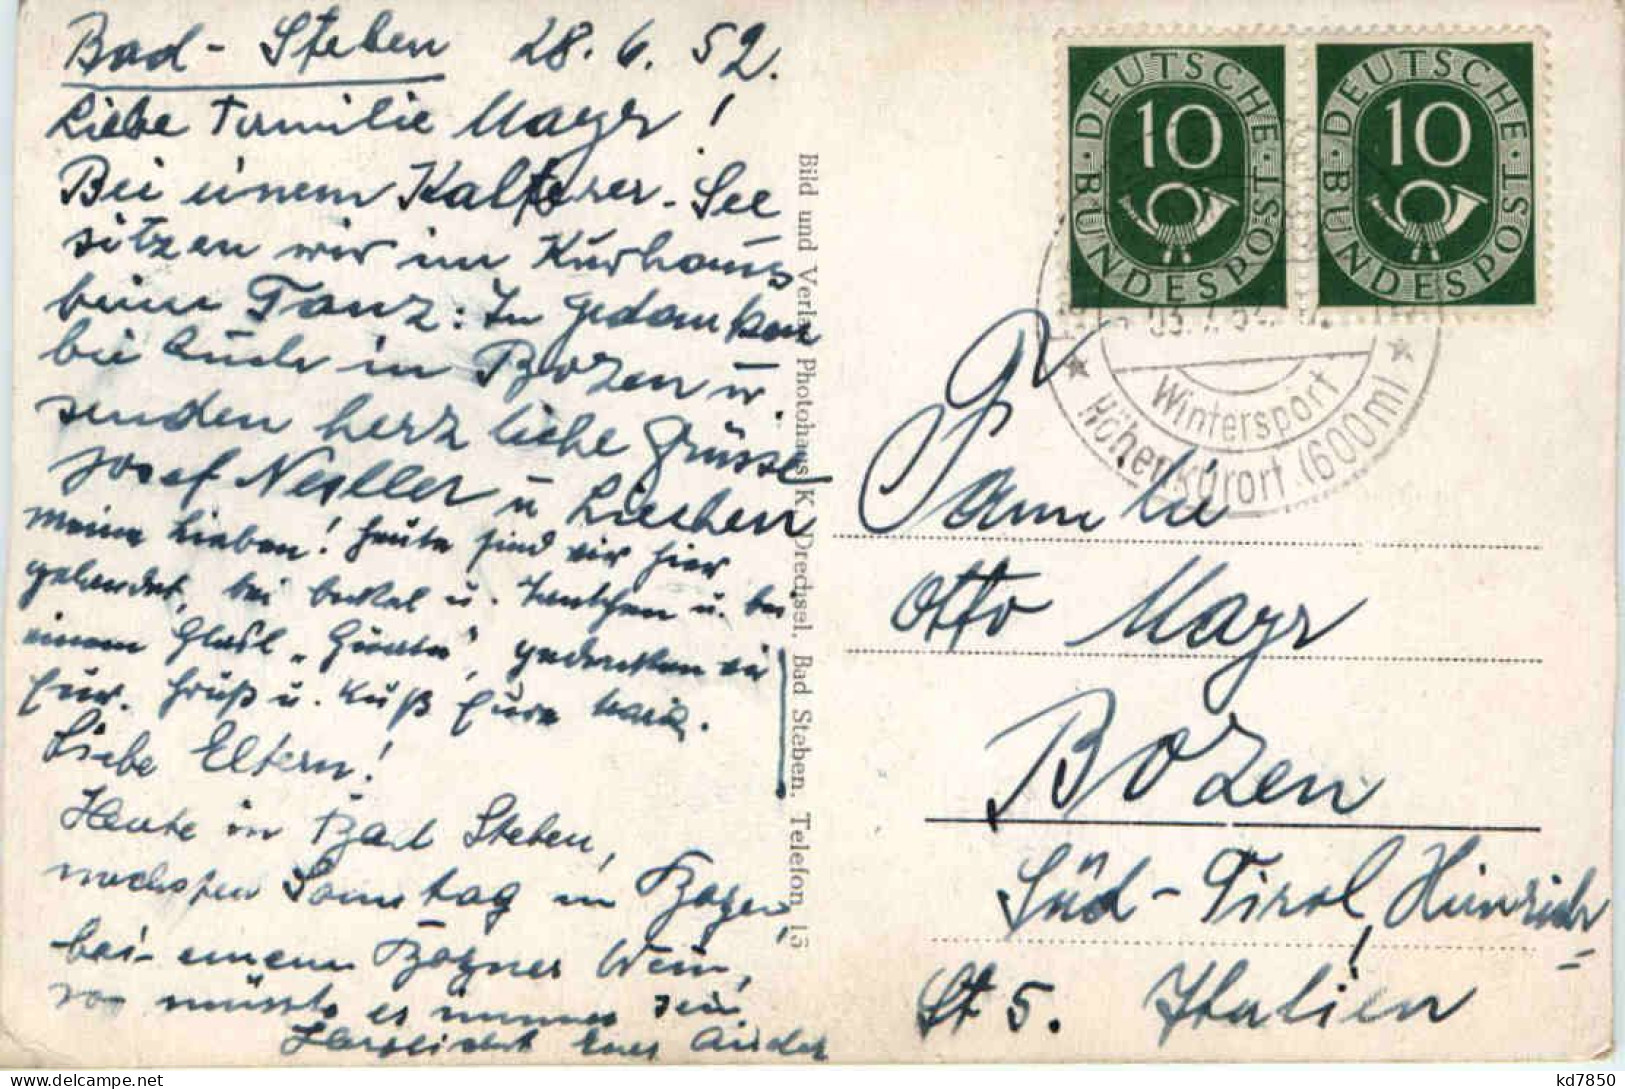 Bad-Steben 28. 6. 52.
Liebe Familie Mayr!
Bei einem Kalterer-See
sitzen wir im Kurhaus
beim Tanz: In Gedanken
bei Euch in Bozen u.
senden herzliche Grüsse
Josef u Lieschen
Meine Lieben! Heute sind wir hier
gelandet, bei u. u. bei
einem Glasl „ “, gedenken wir
Eur. Gruß u. Kuß Eure Maria.
Liebe Eltern!
Heute in Bad Steben,
nächsten Sonntag in Bozen,
bei einem Bozner Wein,
so müsste es immer sein
Herzlichst Euer
Bild und Verlag Photohaus K. Drechsel, Bad Steben, Telefon 15
DEUTSCHE BUNDESPOST 10
DEUTSCHE BUNDESPOST 10
03.7.52
Wintersport
Höhenkurort (600m)
Familie
Otto Mayr
Bozen
Süd-Tirol, Heinrich=
St 5. Italien
kd7850